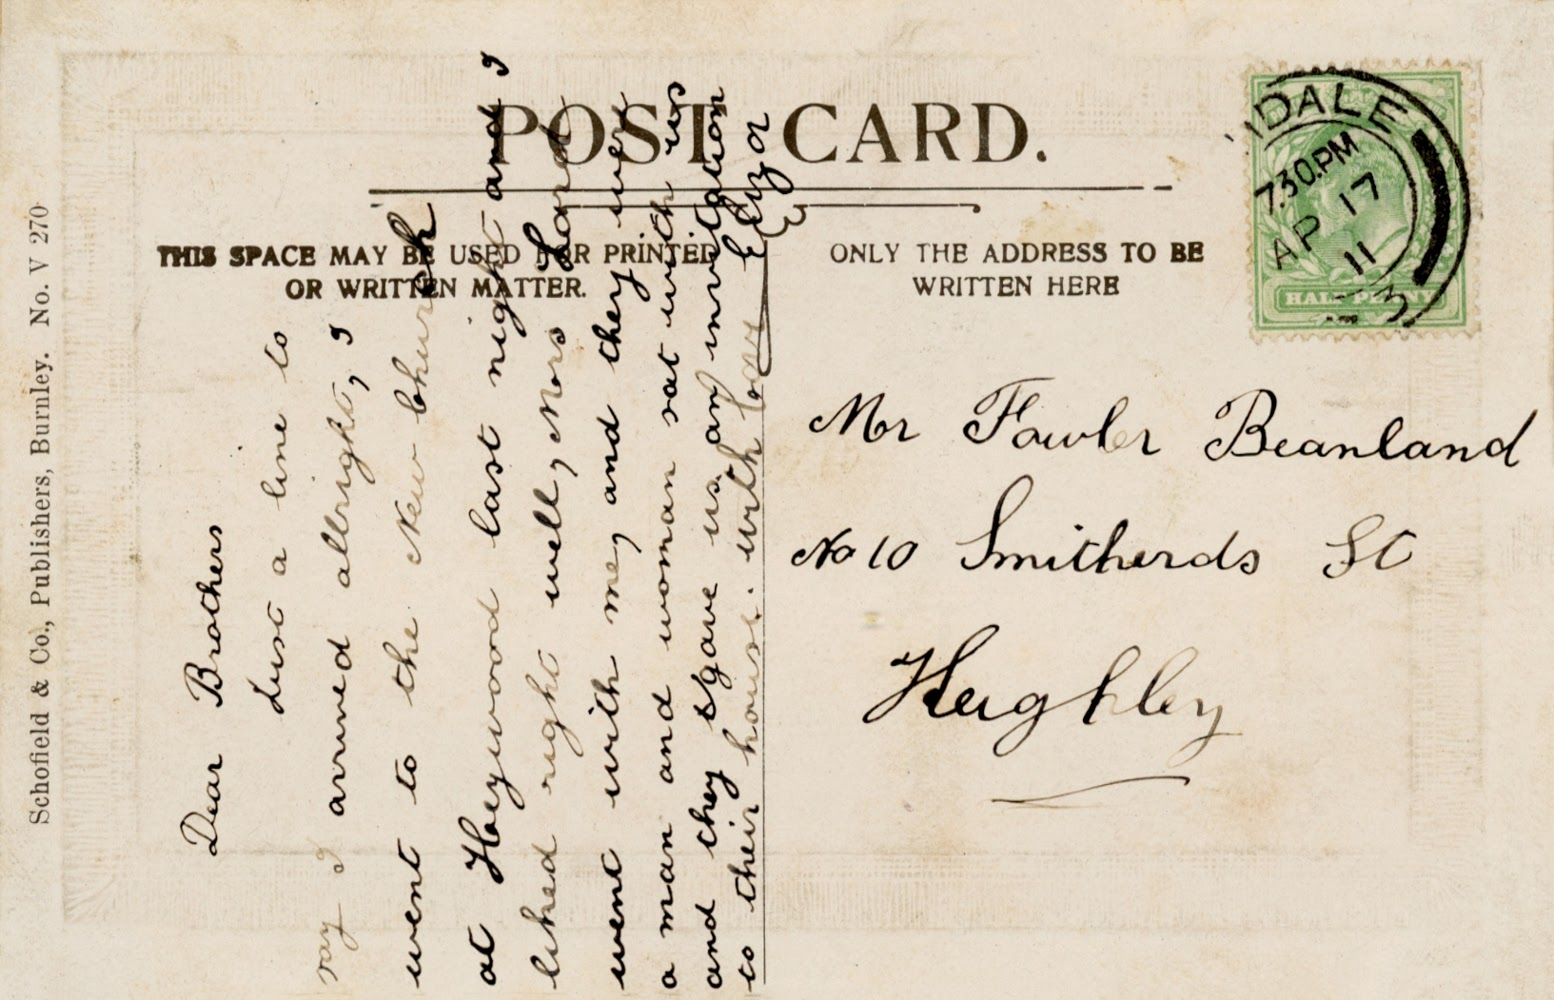 POST CARD.
THIS SPACE MAY BE USED FOR PRINTED
OR WRITTEN MATTER.
ONLY THE ADDRESS TO BE
WRITTEN HERE
Schofield & Co., Publishers, Burnley. No. V 270
DALE
7.30.PM
AP 17
11
3
HALFPENNY
Dear Brothers
Just a line to
say I arrived allright, I
went to the New Church
at Heywood last night and I
liked right well, Mrs Lord
went with me, and they were
a man and woman sat with us
and they gave us an invitation
to their house. with love Eliza
Mr Fowler Beanland
No 10 Smitherds St
Heighley